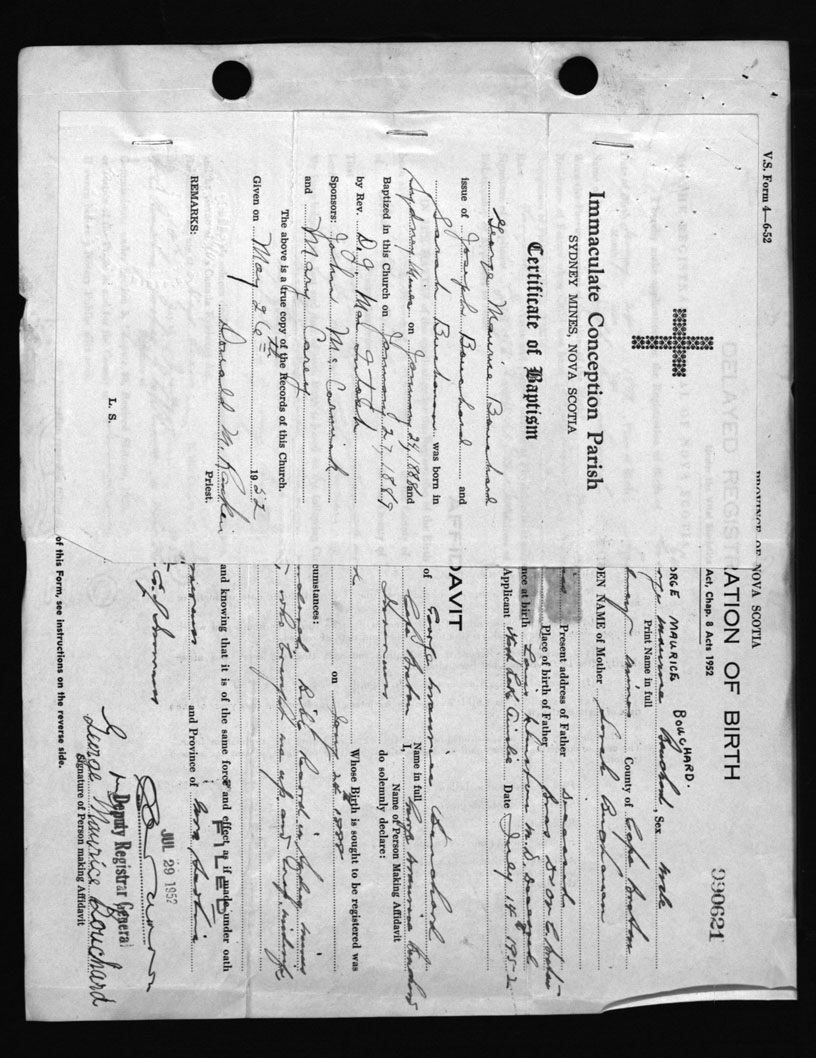 V.S. Form 4—6-52
Immaculate Conception Parish
SYDNEY MINES, NOVA SCOTIA
Certificate of Baptism
George Maurice Bouchard
issue of Joseph Bouchard and
Sarah Buchanan was born in
Sydney Mines on January 24, 1888 and
Baptized in this Church on January 27, 1889
by Rev. D.J. MacIntosh
Sponsors: John McCormick
and Mary Carey
The above is a true copy of the Records of this Church.
Given on May 26th 1952
Donald M.
Priest.
REMARKS:
L. S.
PROVINCE OF NOVA SCOTIA
RATION OF BIRTH
990621
Act, Chap. 8 Acts 1952
ORGE MAURICE BOUCHARD.
Maurice Bouchard, Sex Male
Print Name in full
Mines County of Cape Breton
DEN NAME of Mother Sarah Buchanan
Present address of Father Deceased
Place of birth of Father
nce at birth M.D. Deceased
Applicant Date July 14th 1952
DAVIT
of George Maurice Bouchard
Name in full
Cape Breton I, George Maurice Bouchard
Name of Person Making Affidavit
do solemnly declare:
on 1888
Whose Birth is sought to be registered was
cumstances:
Bible Record in Sydney Mines
who brought me up and
and knowing that it is of the same force and effect as if made under oath
FILED
and Province of Nova Scotia
JUL 29 1952
Deputy Registrar General
George Maurice Bouchard
Signature of Person making Affidavit
of this Form, see instructions on the reverse side.